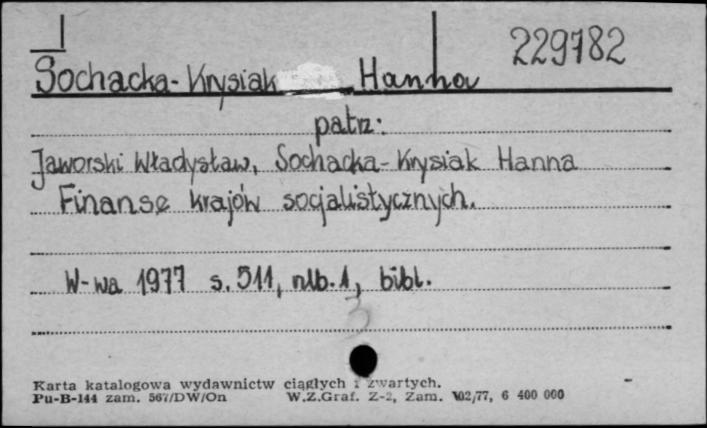 229782
Sochacka-Krysiak Hanna
patrz:
Jaworski Władysław, Sochacka-Krysiak Hanna
Finanse krajów socjalistycznych.
W-wa 1977 s. 511, nlb. 1, bibl.
3
Karta katalogowa wydawnictw ciągłych i zwartych.
Pu-B-144 zam. 567/DW/On W.Z.Graf. Z-2, Zam. 102/77, 6 400 000